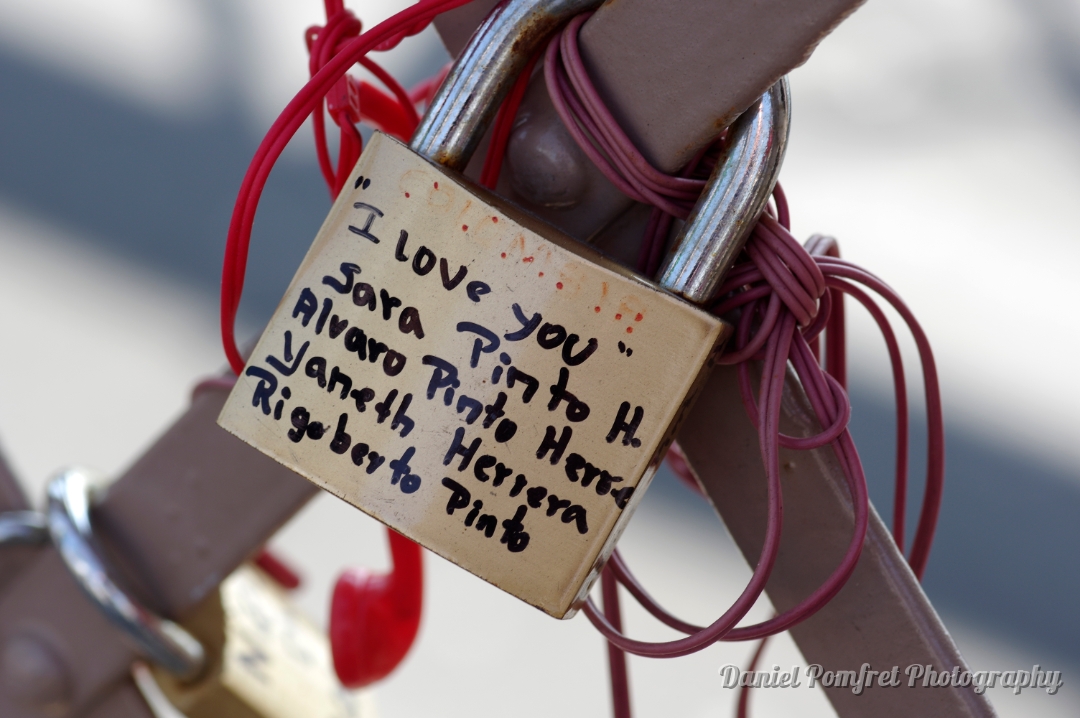 "I love you"
Sara Pinto H.
Alvaro Pinto Herre
Yaneth Herrera
Rigoberto Pinto
Daniel Pomfret Photography